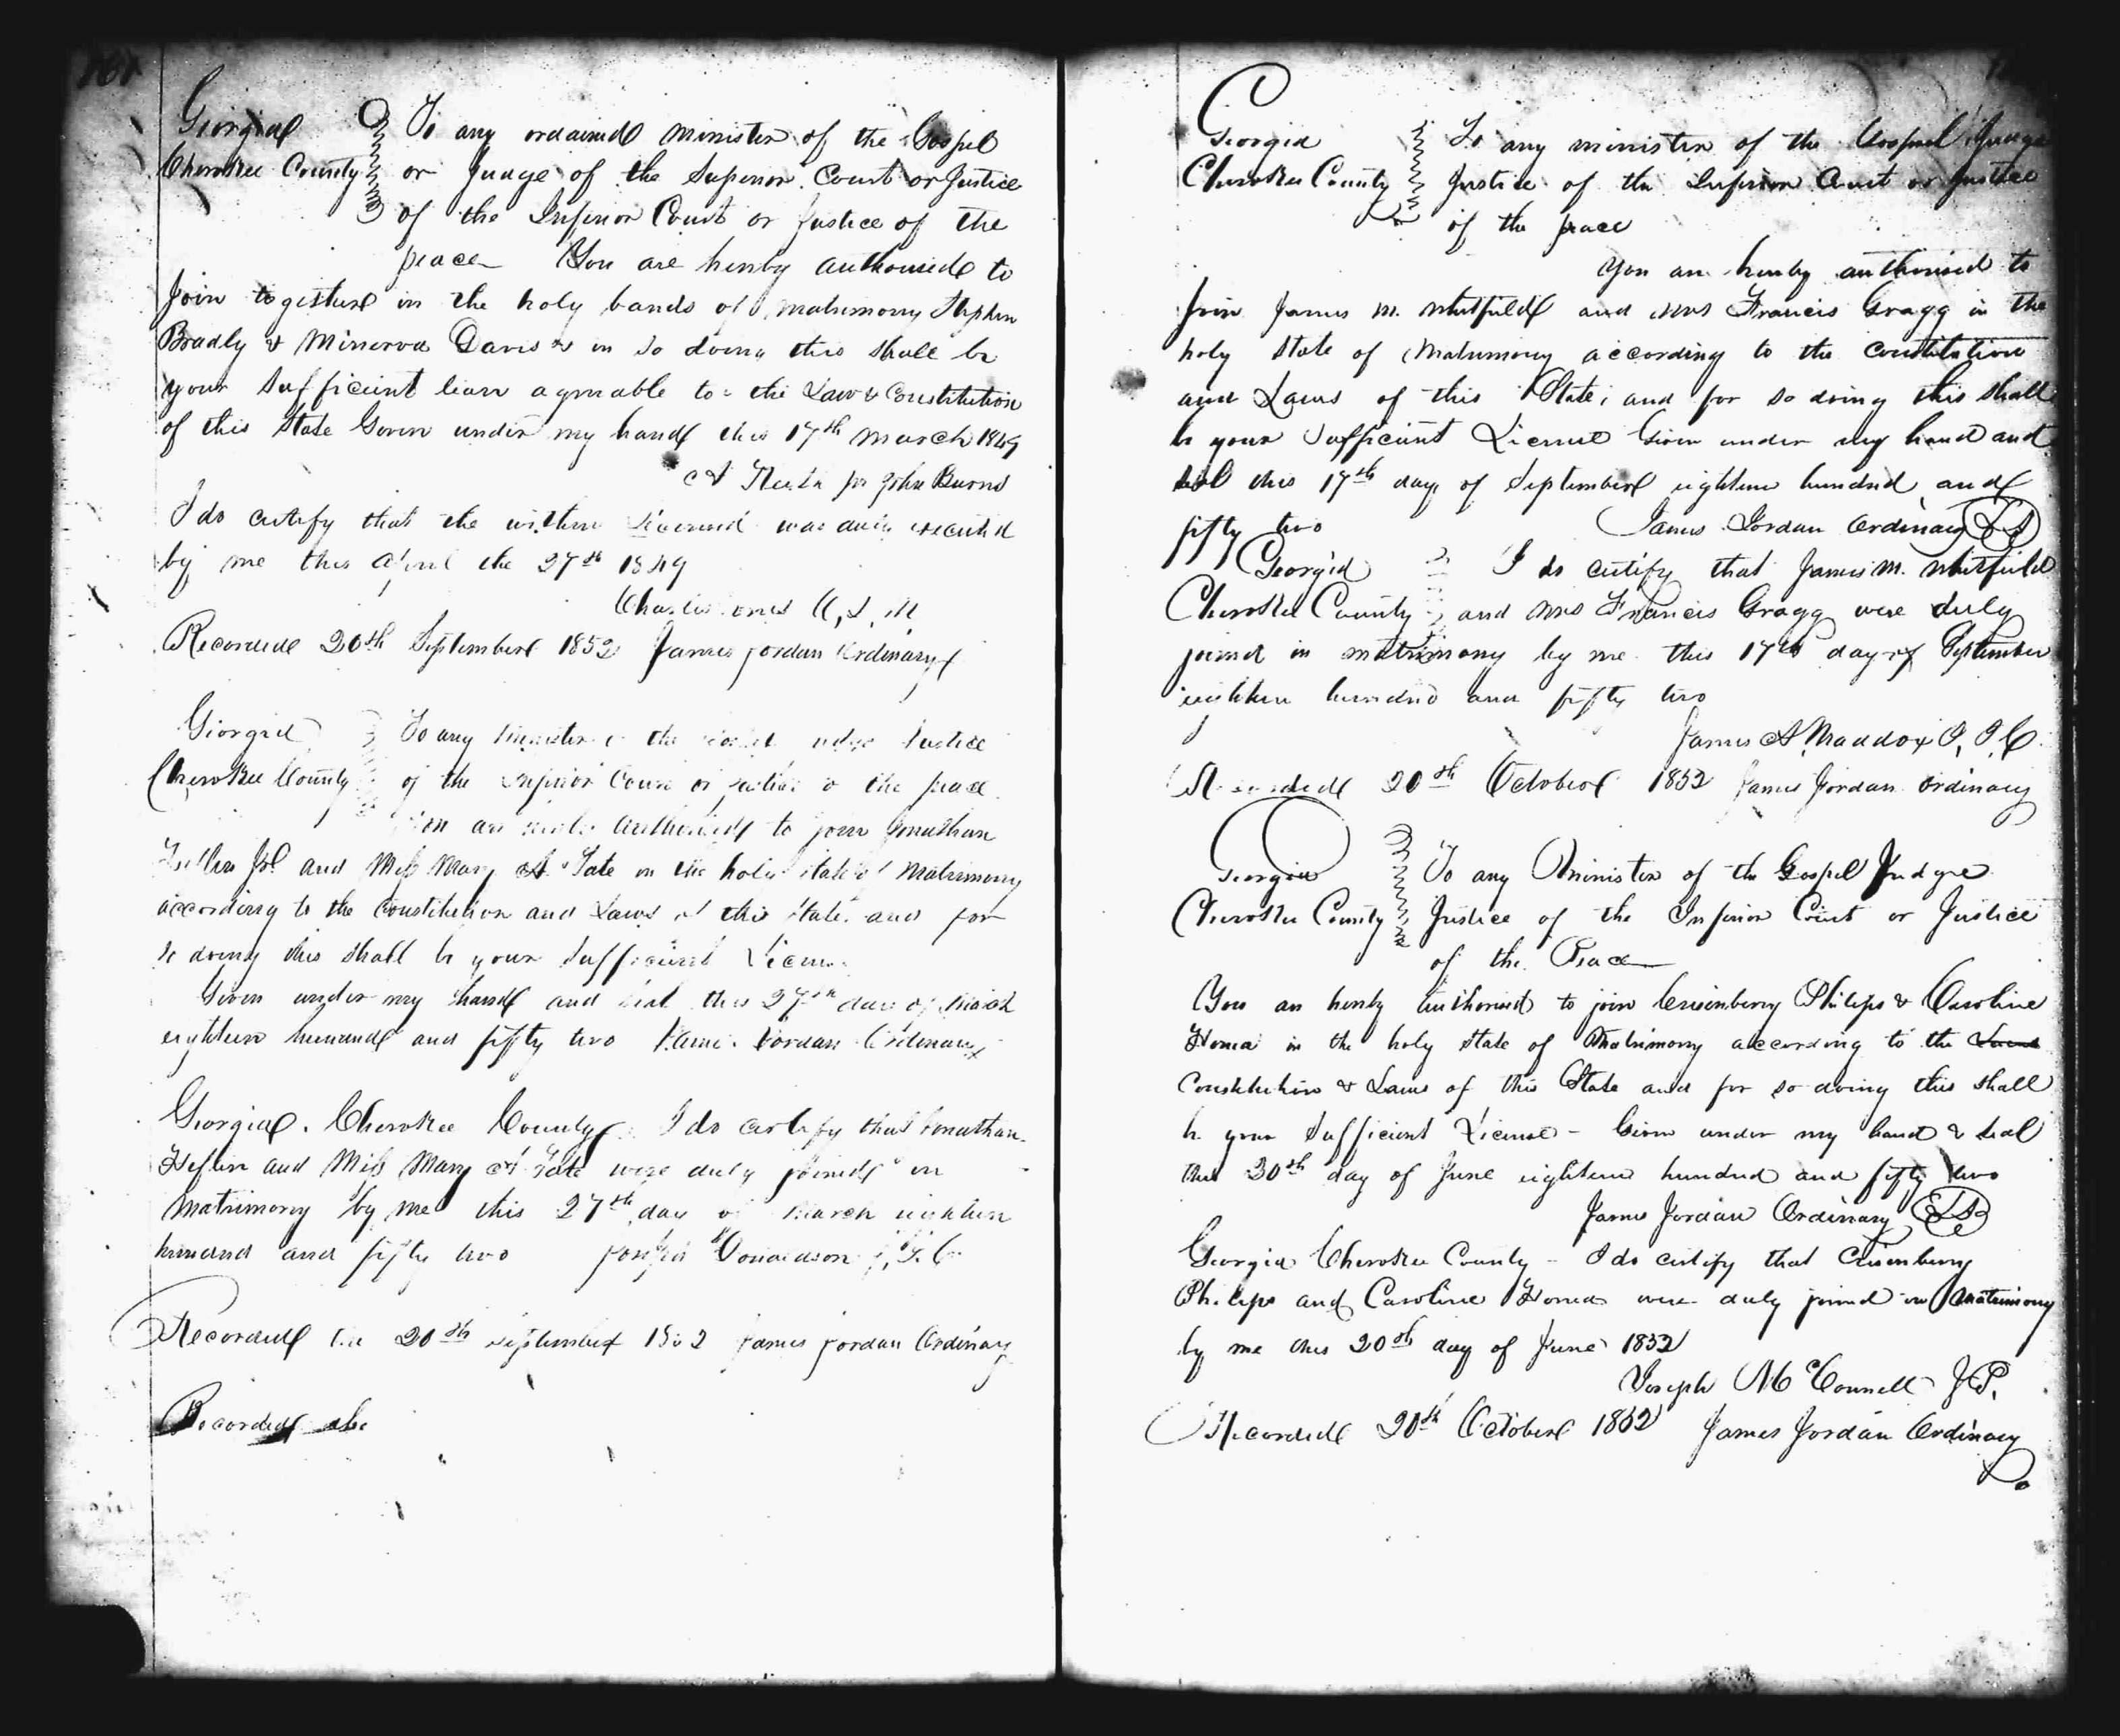 Georgia To any ordained minister of the Gospel
Cherokee County or Judge of the Superior Court or Justice
of the Inferior Court or Justice of the
peace You are hereby authorised to
Join together in the holy bands of matrimony Stephen
Bradly & Minerva Davis & in so doing this shall be
your sufficient agreable to the Law & Constitution
of this State Given under my hand this 17th march 1849
for John Burns
I do certify that the within was duly executed
by me this April the 27th 1849
Recorded 20th September 1852 James Jordan Ordinary
Georgia To any minister the Judge Justice
Cherokee County of the Inferior Court or Justice the peace
You are authorised to join Jonathan
and Miss Mary A Tate in the holy state of Matrimony
according to the Constitution and Laws of this State and for
so doing this shall be your sufficient Licens
Given under my hand and seal this 27th day of March
eighteen hundred and fifty two James Jordan Ordinary
Georgia. Cherokee County I do certify that Jonathan
Heflin and Miss Mary A Tate were duly joined in
Matrimony by me this 27th day of March eighteen
hundred and fifty two Joseph Donaldson J, I, C
Recorded the 20th September 1852 James Jordan Ordinary
Recorded the
Georgia To any minister of the Gospel Judge
Cherokee County Justice of the Inferior Court or Justice
of the peace
You are hereby authorised to
Join James M. Whitfield and Mrs Francis Gragg in the
holy state of Matrimony according to the constitution
and Laws of this State, and for so doing this shall
be your sufficient License Given under my hand and
seal this 17th day of September eighteen hundred and
fifty two James Jordan Ordinary LS
Georgia I do certify that James M. Whitfield
Cherokee County and Mrs Francis Gragg were duly
joined in matrimony by me this 17th day of September
eighteen hundred and fifty two
James A Maddox J, I, C.
Recorded 20th October 1852 James Jordan ordinary
Georgia To any Minister of the Gospel Judge
Cherokee County Justice of the Inferior Court or Justice
of the Peace
You are hereby authorised to join Philips & Caroline
in the holy state of Matrimony according to the Laws
Constitution & Laws of this State and for so doing this shall
be your sufficient License - Given under my hand & seal
this 20th day of June eighteen hundred and fifty two
James Jordan Ordinary LS
Georgia Cherokee County - I do certify that
Philips and Caroline were duly joined in Matrimony
by me this 20th day of June 1852
Joseph McConnell J.P.
Recorded 20th October 1852 James Jordan Ordinary